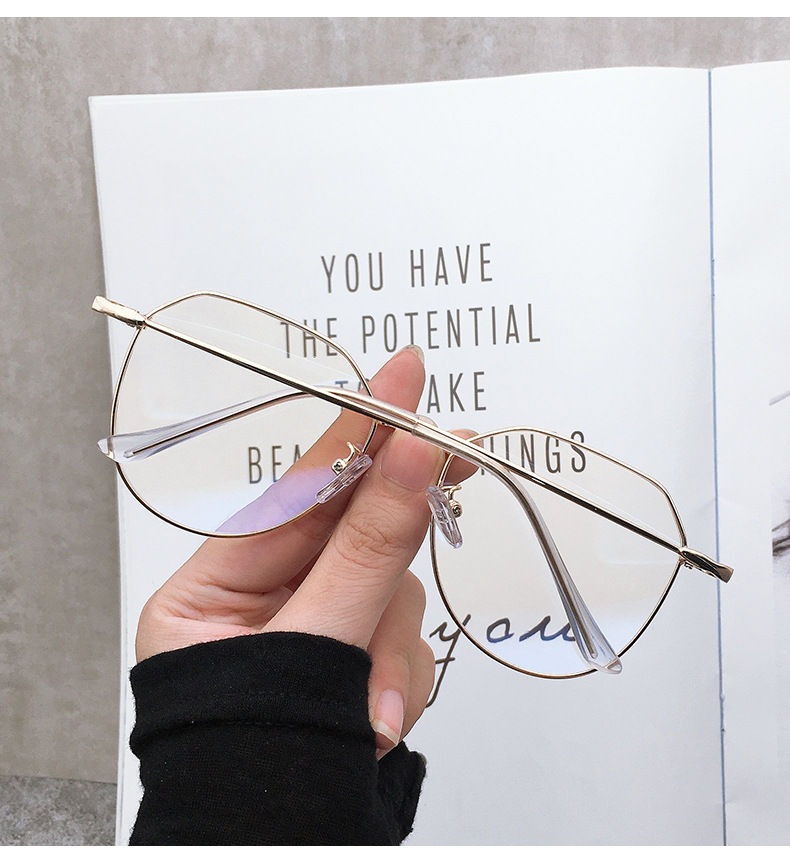 YOU HAVE
THE POTENTIAL
TO MAKE
THINGS
you